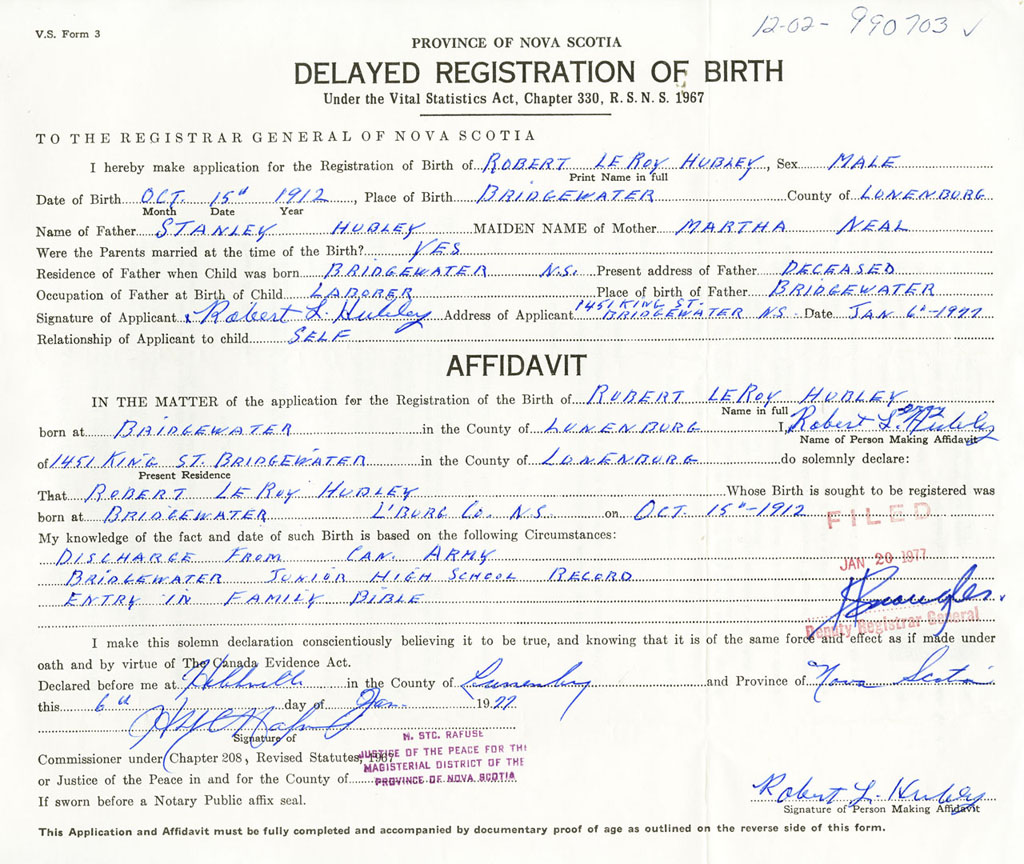 12-02- 990703 ✓
V.S. Form 3
PROVINCE OF NOVA SCOTIA
DELAYED REGISTRATION OF BIRTH
Under the Vital Statistics Act, Chapter 330, R. S. N. S. 1967
TO THE REGISTRAR GENERAL OF NOVA SCOTIA
I hereby make application for the Registration of Birth of ROBERT LE ROY HUBLEY, Sex MALE
Print Name in full
Date of Birth OCT. 15th 1912, Place of Birth BRIDGEWATER County of LUNENBURG
Month Date Year
Name of Father STANLEY HUBLEY MAIDEN NAME of Mother MARTHA NEAL
Were the Parents married at the time of the Birth? YES
Residence of Father when Child was born BRIDGEWATER N.S. Present address of Father DECEASED
Occupation of Father at Birth of Child LABORER Place of birth of Father BRIDGEWATER
Signature of Applicant Robert L. Hubley Address of Applicant 1451 KING ST. BRIDGEWATER NS. Date JAN 6th-1977
Relationship of Applicant to child SELF
AFFIDAVIT
IN THE MATTER of the application for the Registration of the Birth of ROBERT LEROY HUBLEY
Name in full
born at BRIDGEWATER in the County of LUNENBURG I, Robert L. Hubley
Name of Person Making Affidavit
of 1451 KING ST. BRIDGEWATER in the County of LUNENBURG do solemnly declare:
Present Residence
That ROBERT LE ROY HUBLEY Whose Birth is sought to be registered was
born at BRIDGEWATER L'BURG CO. N.S. on OCT. 15th-1912
FILED
My knowledge of the fact and date of such Birth is based on the following Circumstances:
DISCHARGE FROM CAN. ARMY
JAN 20 1977
BRIDGEWATER JUNIOR HIGH SCHOOL RECORD
ENTRY IN FAMILY BIBLE
Deputy Registrar General
I make this solemn declaration conscientiously believing it to be true, and knowing that it is of the same force and effect as if made under
oath and by virtue of The Canada Evidence Act.
Declared before me at Hebbville in the County of Lunenburg and Province of Nova Scotia
this 6th day of Jan. 1977
Signature of
Commissioner under Chapter 208, Revised Statutes, 1967
or Justice of the Peace in and for the County of
H. STC. RAFUSE
JUSTICE OF THE PEACE FOR THE
MAGISTERIAL DISTRICT OF THE
PROVINCE OF NOVA SCOTIA
If sworn before a Notary Public affix seal.
Robert L. Hubley
Signature of Person Making Affidavit
This Application and Affidavit must be fully completed and accompanied by documentary proof of age as outlined on the reverse side of this form.